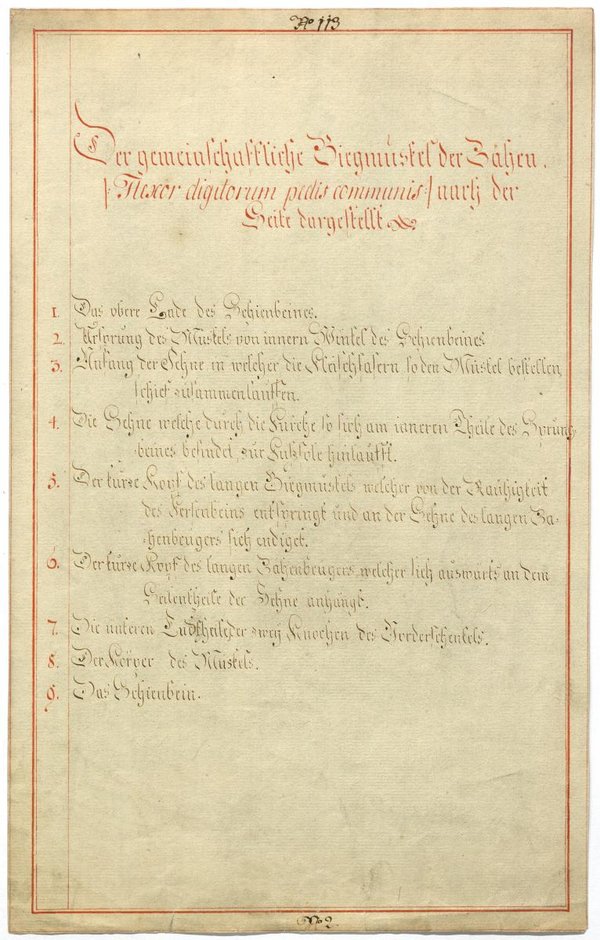 No 113
Der gemeinschaftliche Biegmuskel der Zähen.
|: Flexor digitorum pedis communis :| nach der
Seite dargestellt
1. Das obere Ende des Schienbeines.
2. Ursprung des Muskels von innern Winkel des Schienbeines
3. Anfang der Sehne in welcher die Fläschfasern so den Muskel bestellen
schief zusammenlauffen.
4. Die Sehne welche durch die Furche so sich am inneren Theile des Sprung-
beines befindet zur Fußsole hinlaufft.
5. Der kurze Kopf des langen Biegmuskels welcher von der Rauhigkeit
des Fersenbeins entspringt und an der Sehne des langen Zä-
henbeugers sich endiget.
6. Der kurze Kopf des langen Zähenbeugers welcher sich auswärts an dem
Seitentheile der Sehne anhängt.
7. Die unteren Endtheile der zwey Knochen des Vorderschenkels.
8. Der Körper des Muskels.
9. Das Schienbein.
No 2